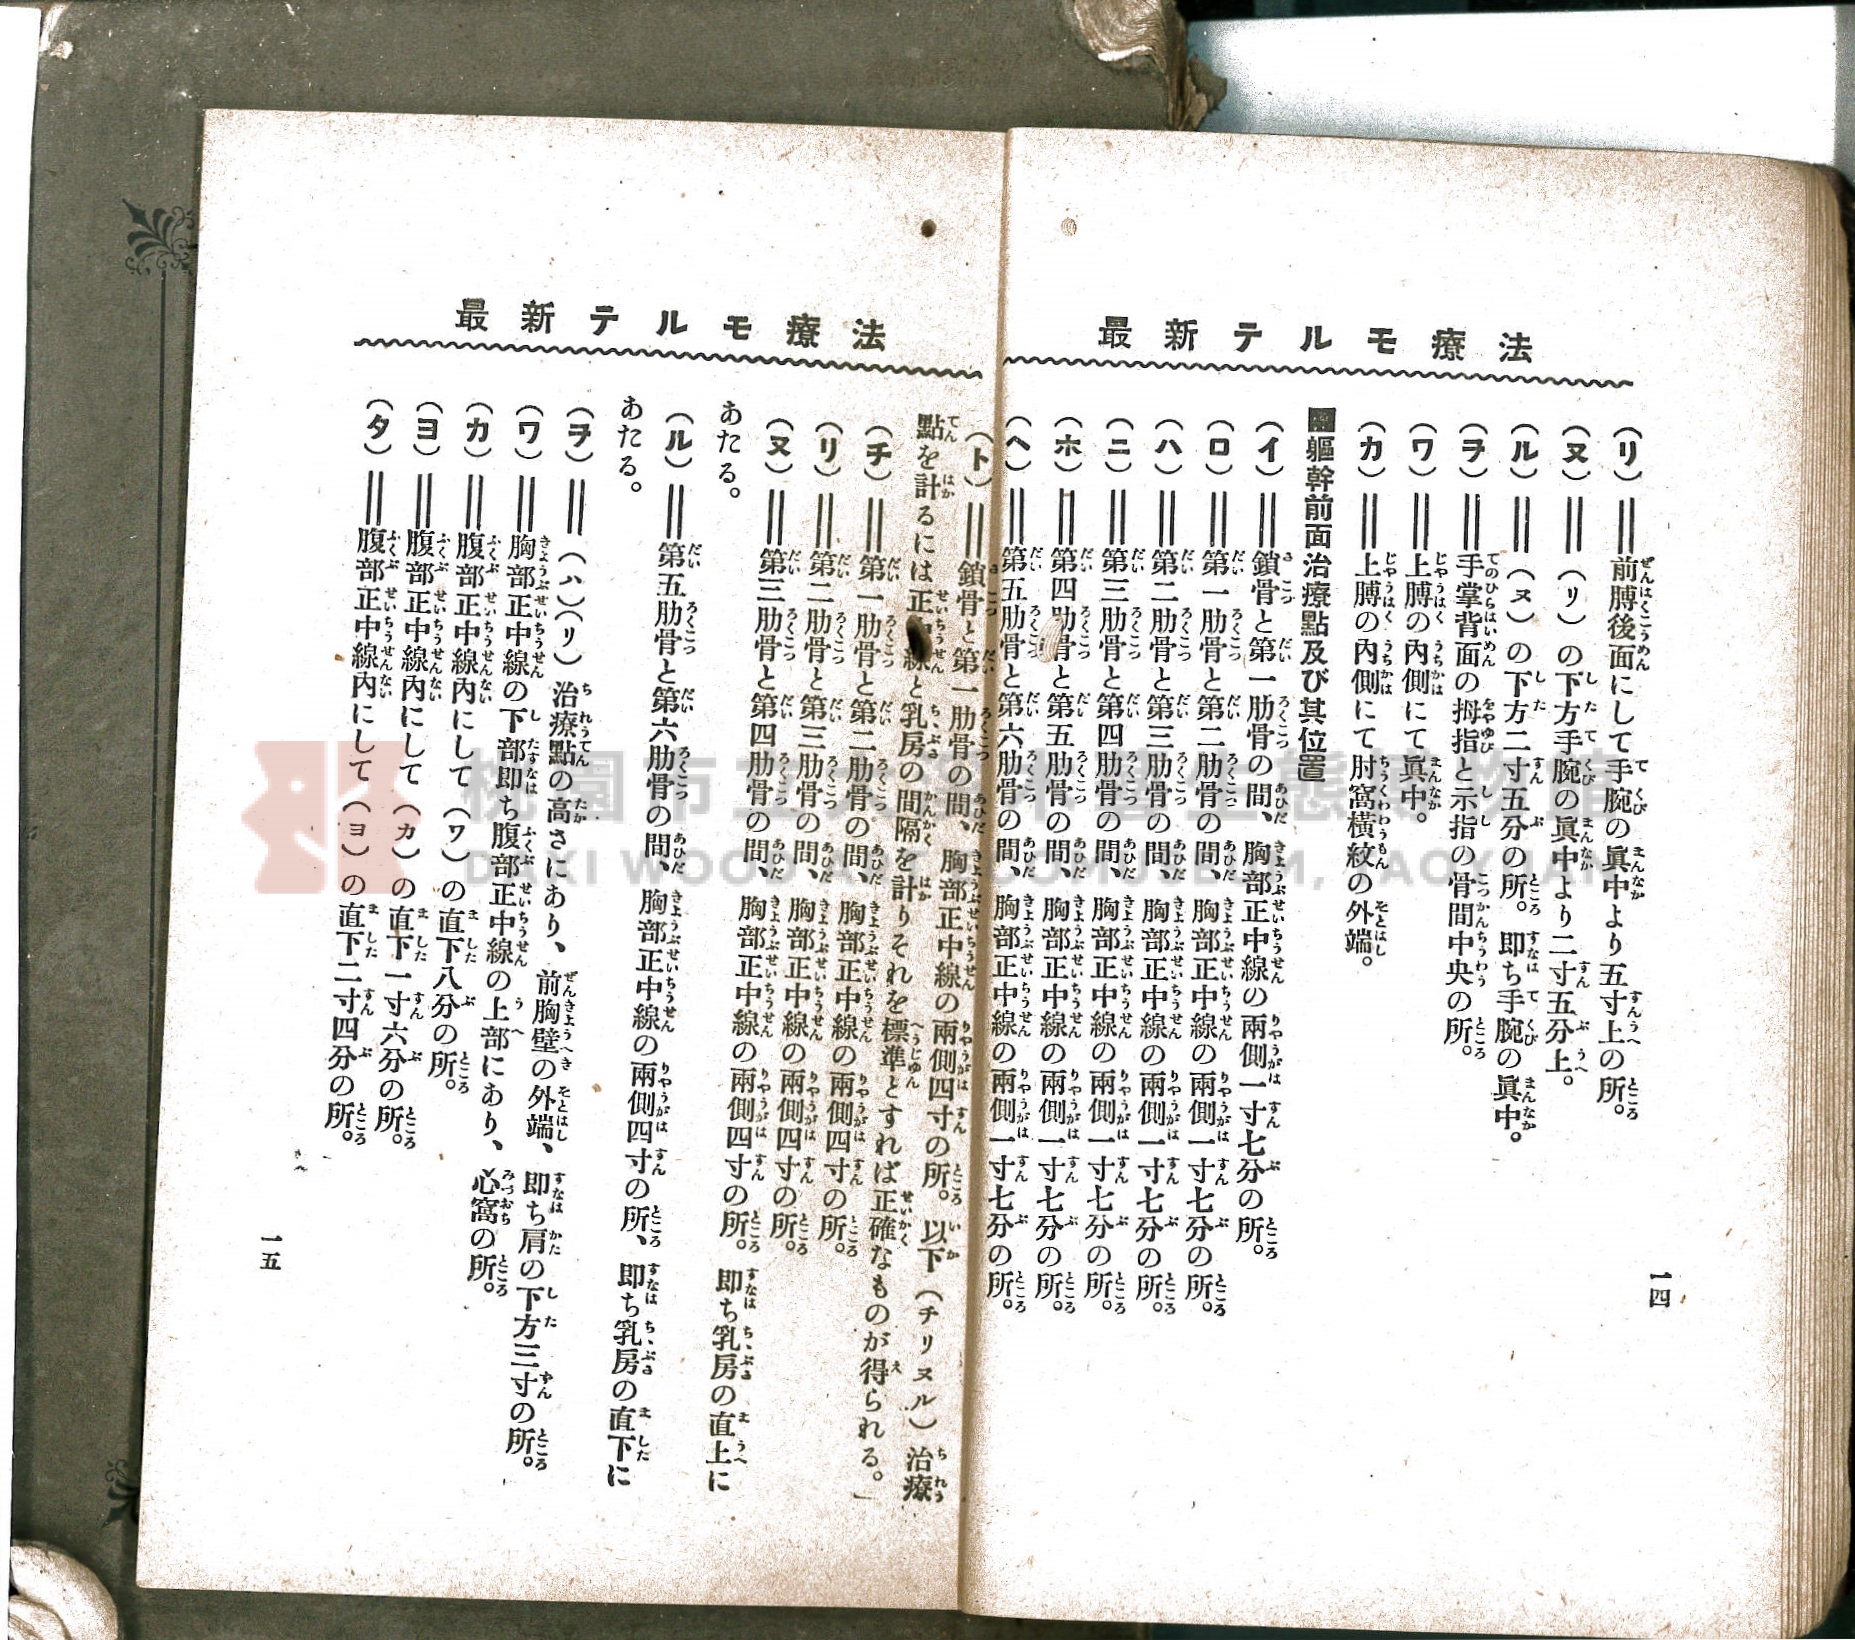 最新テルモ療法
（リ）＝＝前膊後面にして手腕の眞中より五寸上の所。
（ヌ）＝＝（リ）の下方手腕の眞中より二寸五分上。
（ル）＝＝（ヌ）の下方二寸五分の所。即ち手腕の眞中。
（ヲ）＝＝手掌背面の拇指と示指の骨間中央の所。
（ワ）＝＝上膊の內側にて眞中。
（カ）＝＝上膊の內側にて肘窩橫紋の外端。
軀幹前面治療點及び其位置
（イ）＝＝鎖骨と第一肋骨の間、胸部正中線の兩側一寸七分の所。
（ロ）＝＝第一肋骨と第二肋骨の間、胸部正中線の兩側一寸七分の所。
（ハ）＝＝第二肋骨と第三肋骨の間、胸部正中線の兩側一寸七分の所。
（ニ）＝＝第三肋骨と第四肋骨の間、胸部正中線の兩側一寸七分の所。
（ホ）＝＝第四肋骨と第五肋骨の間、胸部正中線の兩側一寸七分の所。
（ヘ）＝＝第五肋骨と第六肋骨の間、胸部正中線の兩側一寸七分の所。
一四
最新テルモ療法
（ト）＝＝鎖骨と第一肋骨の間、胸部正中線の兩側四寸の所。以下（チリヌル）治療
點を計るには正中線と乳房の間隔を計りそれを標準とすれば正確なものが得られる。」
（チ）＝＝第一肋骨と第二肋骨の間、胸部正中線の兩側四寸の所。
（リ）＝＝第二肋骨と第三肋骨の間、胸部正中線の兩側四寸の所。
（ヌ）＝＝第三肋骨と第四肋骨の間、胸部正中線の兩側四寸の所。即ち乳房の直上に
あたる。
（ル）＝＝第五肋骨と第六肋骨の間、胸部正中線の兩側四寸の所、即ち乳房の直下に
あたる。
（ヲ）＝＝（ハ）（リ）治療點の高さにあり、前胸壁の外端、即ち肩の下方三寸の所。
（ワ）＝＝胸部正中線の下部即ち腹部正中線の上部にあり、心窩の所。
（カ）＝＝腹部正中線內にして（ワ）の直下八分の所。
（ヨ）＝＝腹部正中線內にして（カ）の直下一寸六分の所。
（タ）＝＝腹部正中線內にして（ヨ）の直下二寸四分の所。
一五
桃園市立大溪木藝生態博物館
DAXI WOOD ART ECOMUSEUM, TAOYUAN